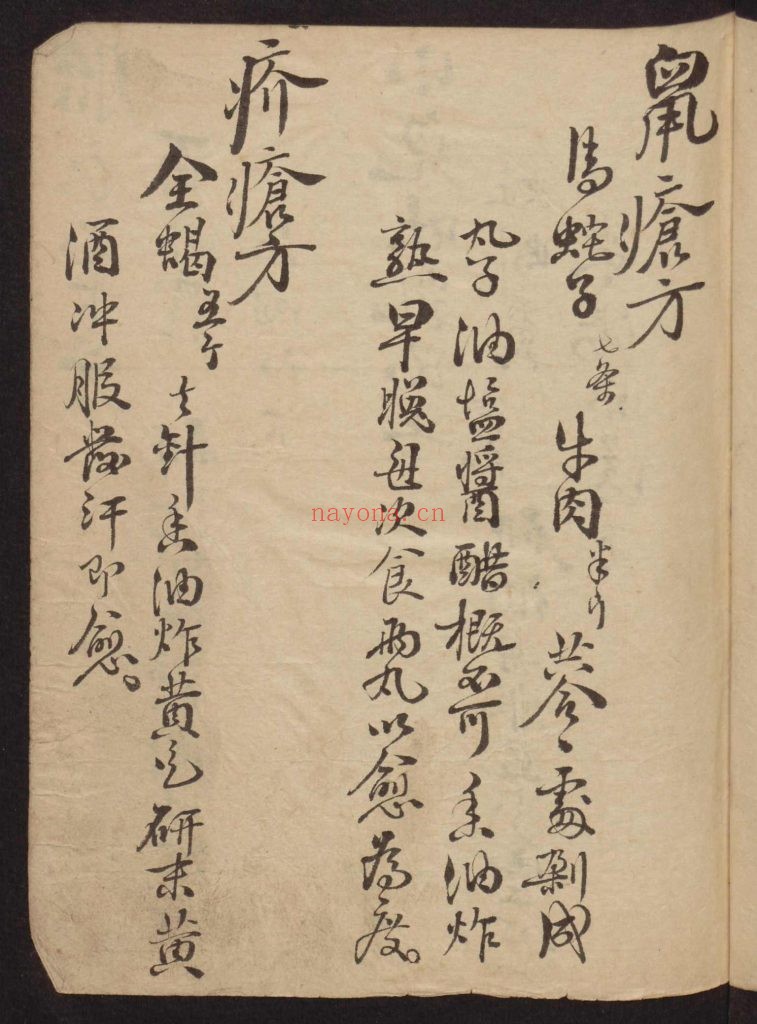 鼠瘡方
馬蛇子 七条 牛肉 半斤 共合一處剁成
丸子油塩醬醋概不可香油炸
熟早晚每次食兩丸以愈為度
疥瘡方
全蝎 五个 去針香油炸黄色研末黄
酒冲服發汗即愈
nayona.cn